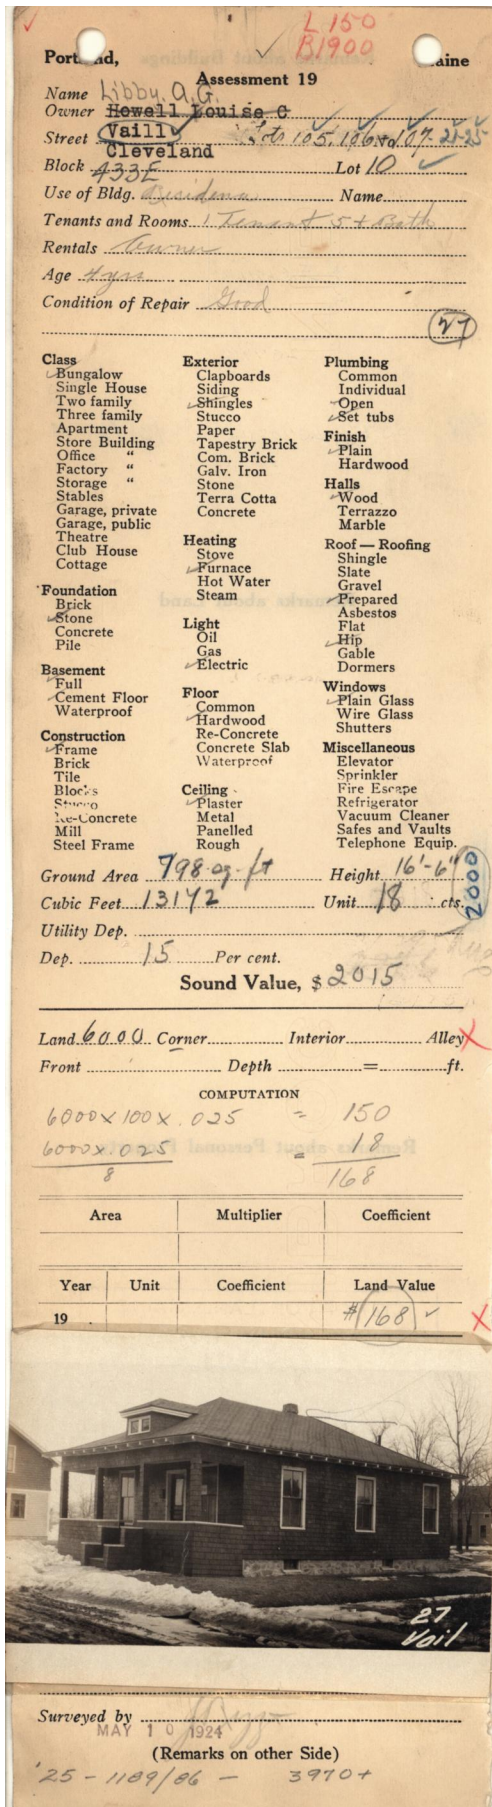 L 150
B 1900
Portland, Maine
Assessment 19
Name Libby. A.G.
Owner Howell Louise C
Street Vaill Lots 105, 106 & 107- 21-25
Cleveland
Block 433E Lot 10
Use of Bldg. Residence Name
Tenants and Rooms 1 Tenant 5 + Bath
Rentals Owner
Age 4 yrs
Condition of Repair Good
27
Class
Bungalow
Single House
Two family
Three family
Apartment
Store Building
Office "
Factory "
Storage "
Stables
Garage, private
Garage, public
Theatre
Club House
Cottage
Foundation
Brick
Stone
Concrete
Pile
Basement
Full
Cement Floor
Waterproof
Construction
Frame
Brick
Tile
Blocks
Stucco
Re-Concrete
Mill
Steel Frame
Exterior
Clapboards
Siding
Shingles
Stucco
Paper
Tapestry Brick
Com. Brick
Galv. Iron
Stone
Terra Cotta
Concrete
Heating
Stove
Furnace
Hot Water
Steam
Light
Oil
Gas
Electric
Floor
Common
Hardwood
Re-Concrete
Concrete Slab
Waterproof
Ceiling
Plaster
Metal
Panelled
Rough
Plumbing
Common
Individual
Open
Set tubs
Finish
Plain
Hardwood
Halls
Wood
Terrazzo
Marble
Roof — Roofing
Shingle
Slate
Gravel
Prepared
Asbestos
Flat
Hip
Gable
Dormers
Windows
Plain Glass
Wire Glass
Shutters
Miscellaneous
Elevator
Sprinkler
Fire Escape
Refrigerator
Vacuum Cleaner
Safes and Vaults
Telephone Equip.
Ground Area 798 sq. ft Height 16'-6"
Cubic Feet 13142 Unit 18 cts.
2000
Utility Dep.
Dep. 15 Per cent.
Sound Value, $ 2015
Land 6000 Corner Interior Alley X
Front Depth = ft.
COMPUTATION
6000 x 100 x .025 = 150
6000 x .025 = 18
8 168
Area Multiplier Coefficient
Year Unit Coefficient Land Value
19 $168 X
27
Vail
Surveyed by
MAY 10 1924
(Remarks on other Side)
'25 - 1189/86 - 3970+